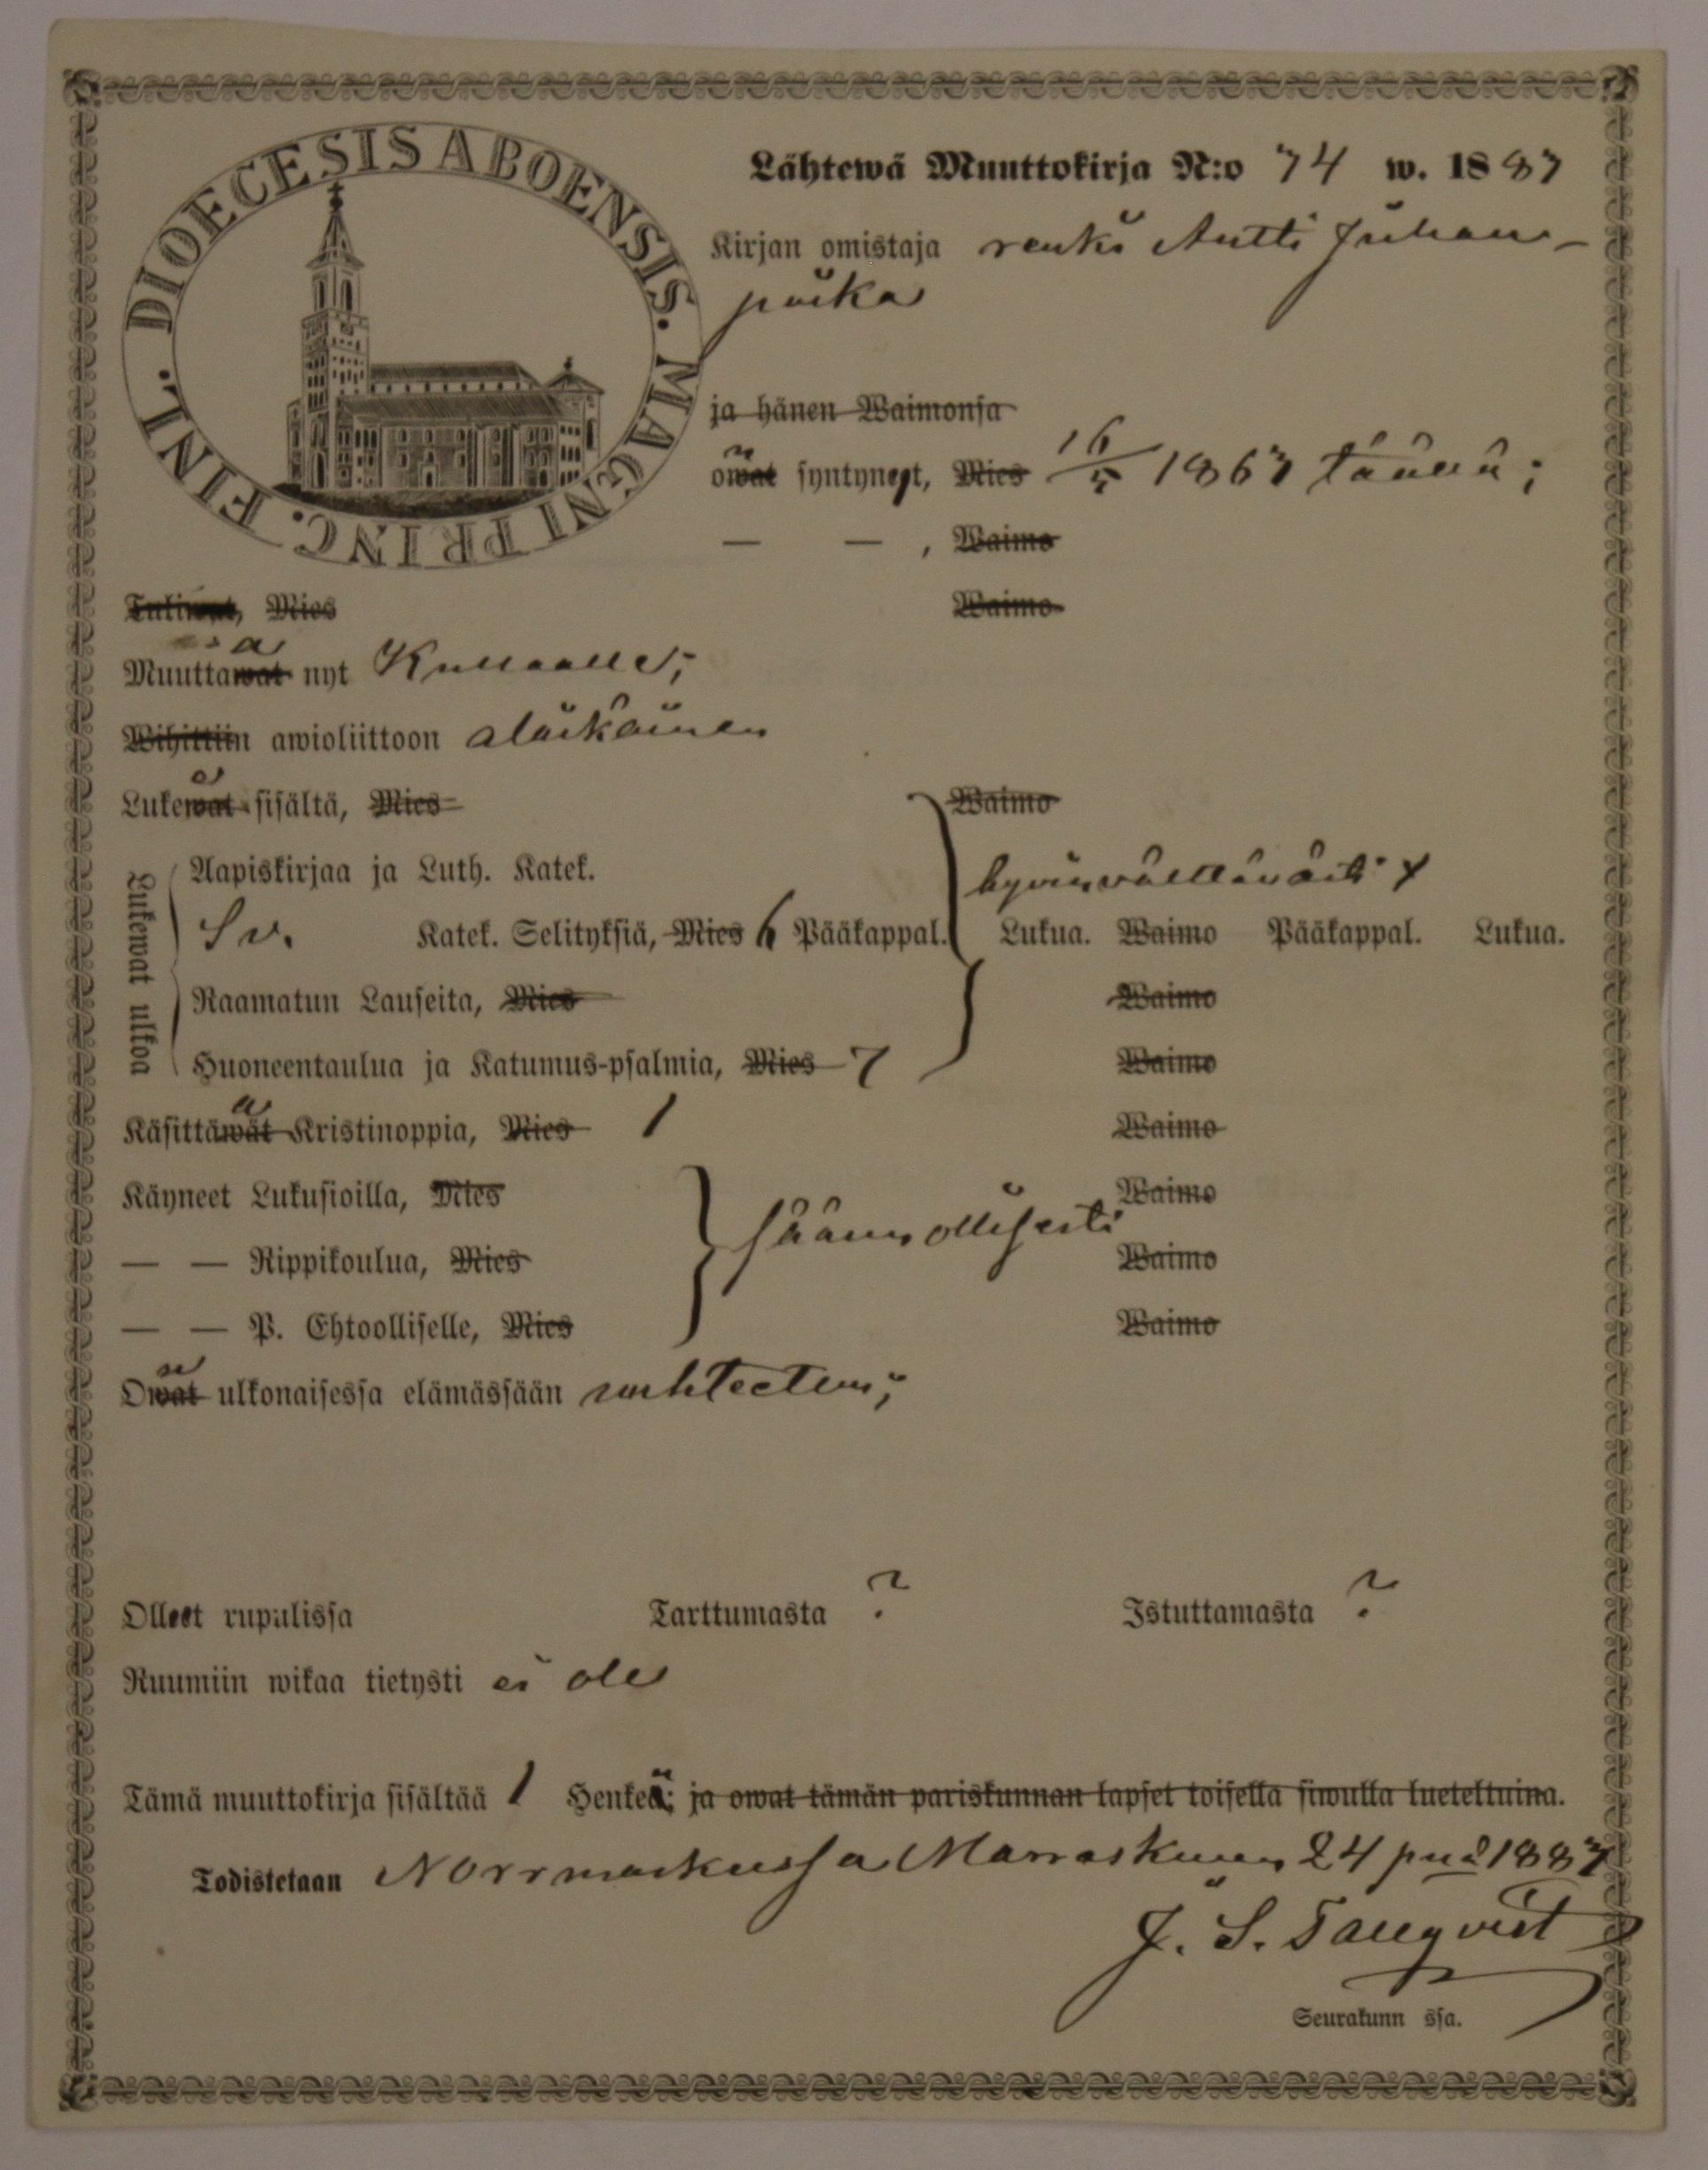 DIOECESIS ABOENSIS. MAGNI PRINC. FINL.
Lähtewä Muuttokirja N:o 74 w. 1887
Kirjan omistaja renki Antti Juhan-
poika
ja hänen Waimonsa
owat syntynyt, Mies 16/5 1867 täällä;
— — , Waimo
Mies Waimo
Muuttawat a nyt Kullaalle;
Wihittiin awioliittoon alaikäinen
Lukewat e sisältä, Mies Waimo
Lukewat ulkoa
Aapiskirjaa ja Luth. Katek. hyvin välttävästi
Sv. Katek. Selityksiä, Mies 6 Pääkappal. Lukua. Waimo Pääkappal. Lukua.
Raamatun Lauseita, Mies Waimo
Huoneentaulua ja Katumus-psalmia, Mies 7 Waimo
Käsittäwät ä Kristinoppia, Mies 1 Waimo
Käyneet Lukusioilla, Mies Waimo
säännöllisesti
— — Rippikoulua, Mies Waimo
— — P. Ehtoolliselle, Mies Waimo
Owat n ulkonaisessa elämässään nuhteeton;
Olleet rupulissa Tarttumasta ? Istuttamasta ?
Ruumiin wikaa tietysti ei ole
Tämä muuttokirja sisältää 1 Henkeä; ja owat tämän pariskunnan lapset toisella siwulla lueteltuina.
Todistetaan Norrmarkussa Marraskuun 24 pnä 1887
J. S. Tallqvist
Seurakunn ssa.